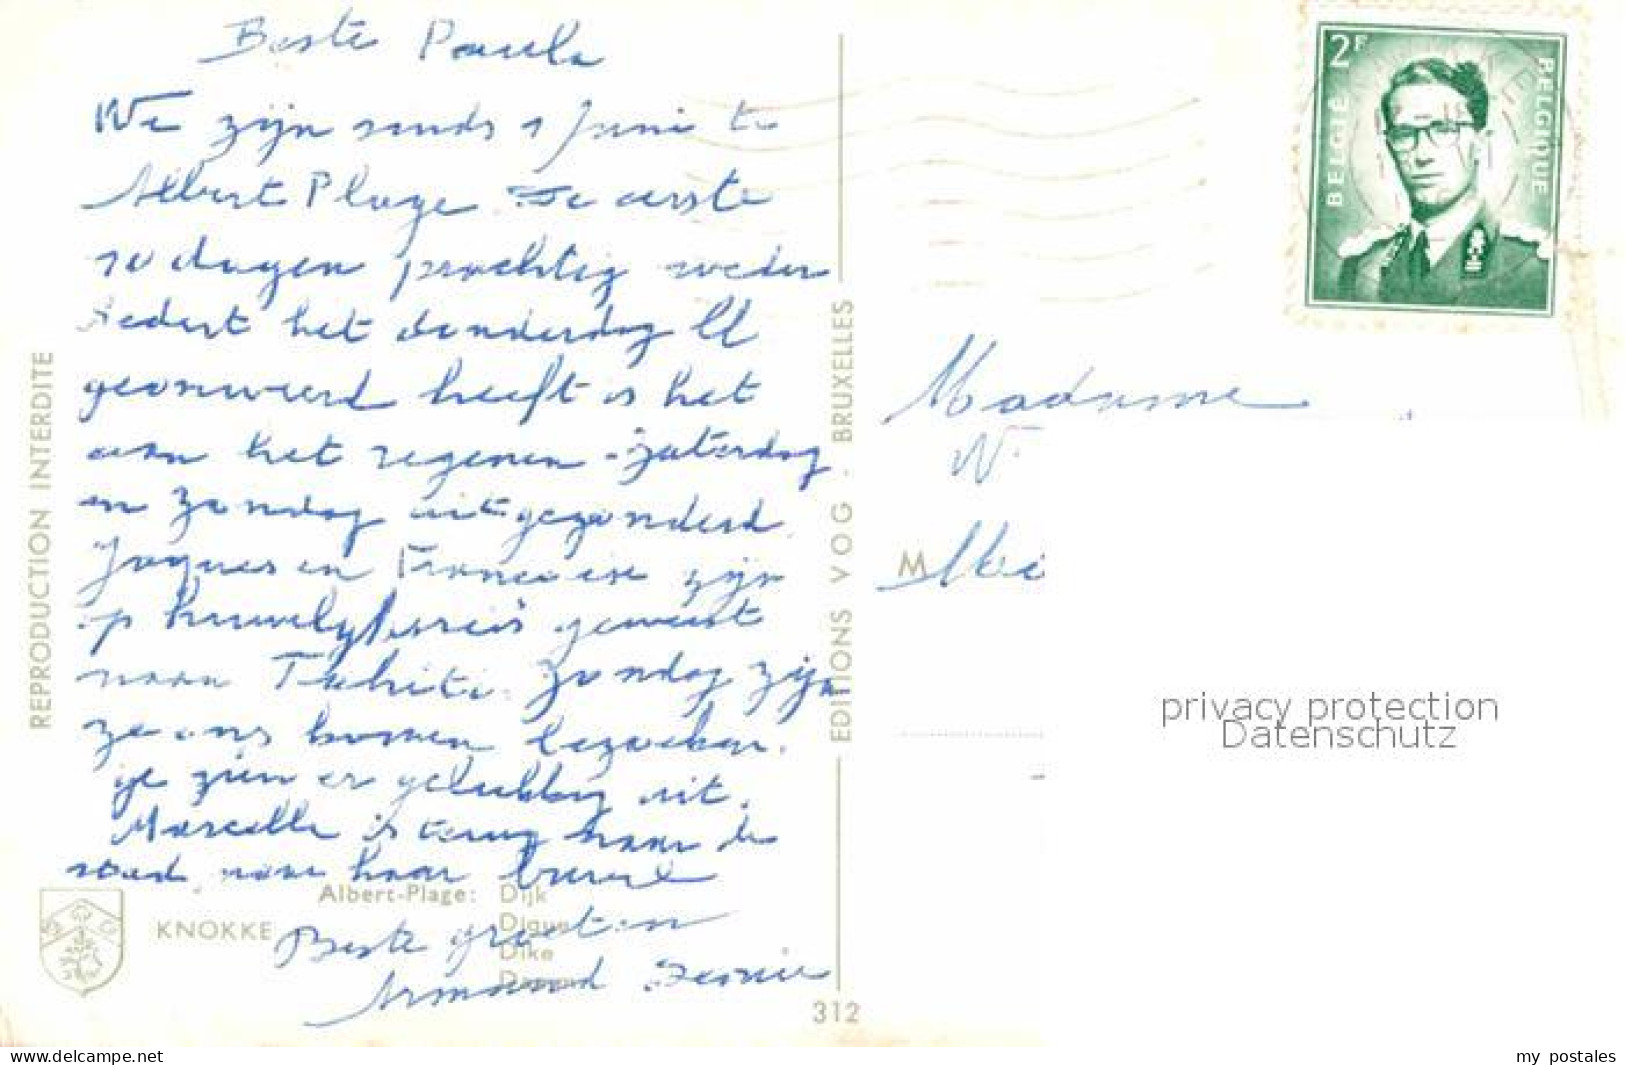 Beste Paula
We zijn sinds 1 Juni te
Albert Plage. De eerste
10 dagen prachtig weder
sedert het donderdag ll
geonweerd heeft is het
aan het regenen - zaterdag
en zondag uitgezonderd.
Jaques en Francoise zijn
op huwelyksreis geweest
naar Tahiti. Zondag zijn
ze ons komen bezoeken.
ze zien er gelukkig uit.
Marcelle is terug naar de
stad naar haar
Beste groeten
Armand Jennie
REPRODUCTION INTERDITE
KNOKKE
Albert-Plage: Dijk
Digue
Dike
EDITIONS VOG. BRUXELLES
312
2F
BELGIË
BELGIQUE
Madame
W
M
privacy protection
Datenschutz
www.delcampe.net
my postales